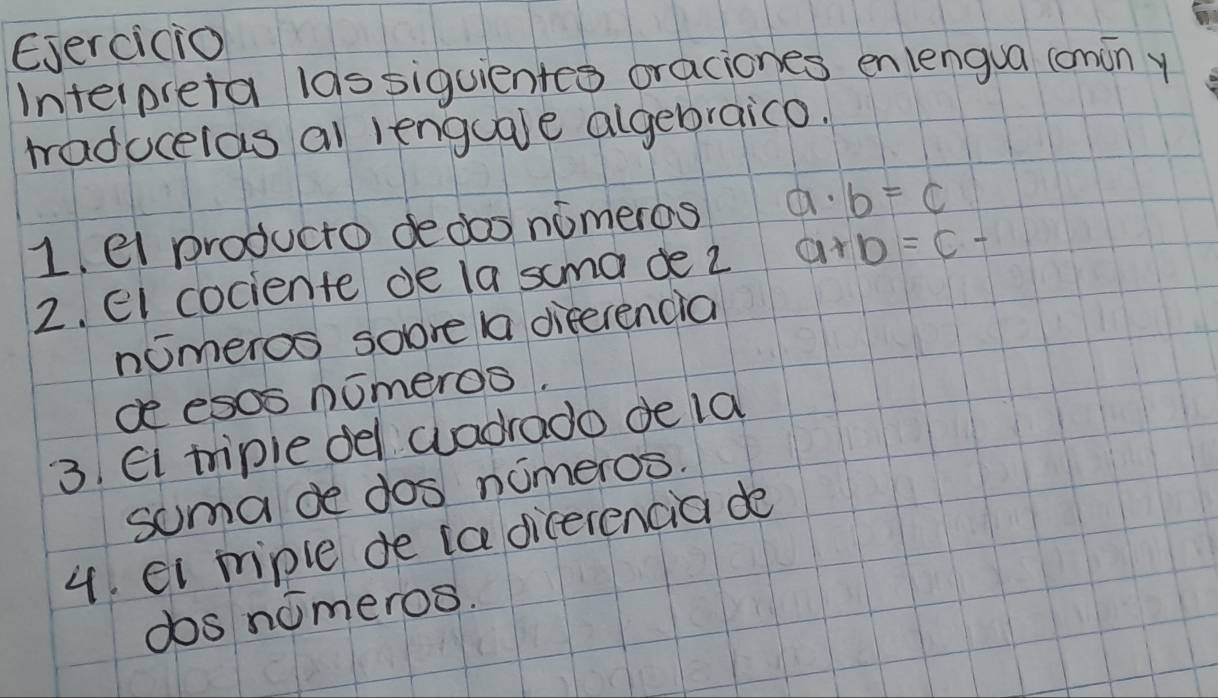 Ejercicio
Interpreta las siguientes oraciones en lengua común y
traducelas al lenguaje algebraico.
1. el producto de dos números a·b = c
2. el cociente de la suma de 2 a+b = c -
números sobre la diferencia
de esos números.
3. el triple del cuadrado de la
suma de dos números.
4. el triple de la diferencia de
dos números.